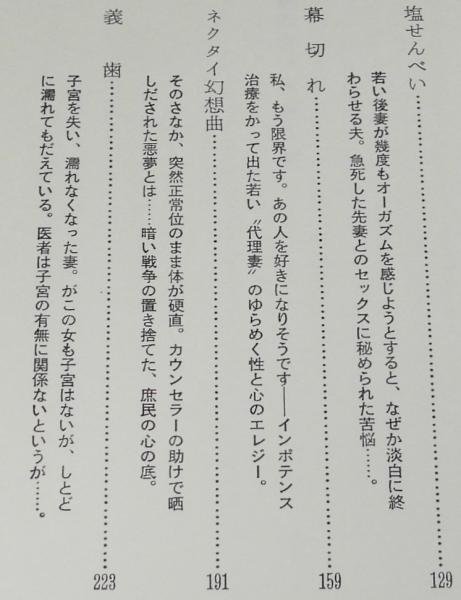 塩せんべい……………………129
若い後妻が幾度もオーガズムを感じようとすると、なぜか淡白に終
わらせる夫。急死した先妻とのセックスに秘められた苦悩……。
幕切れ……………………159
私、もう限界です。あの人を好きになりそうです――インポテンス
治療をかって出た若い〝代理妻〟のゆらめく性と心のエレジー。
ネクタイ幻想曲……………………191
そのさなか、突然正常位のまま体が硬直。カウンセラーの助けで晒
しだされた悪夢とは……暗い戦争の置き捨てた、庶民の心の底。
義歯……………………223
子宮を失い、濡れなくなった妻。がこの女も子宮はないが、しとど
に濡れてもだえている。医者は子宮の有無に関係ないというが……。